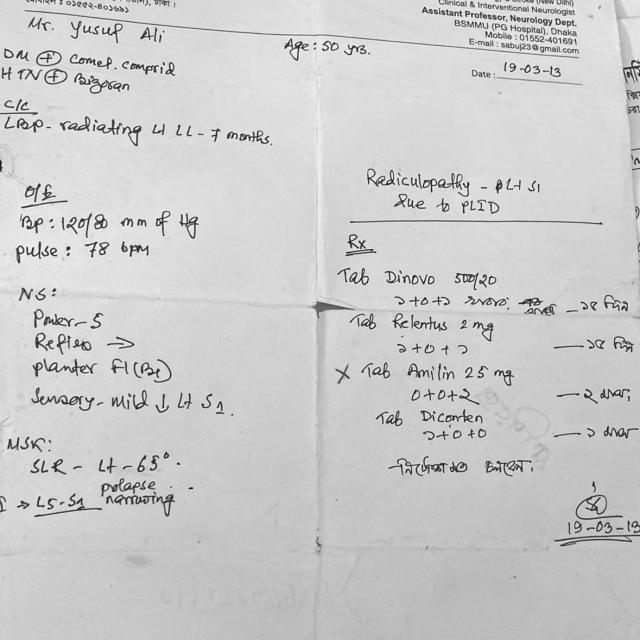 Clinical & Interventional Neurologist
Assistant Professor, Neurology Dept.
BSMMU (PG Hospital), Dhaka
Mobile : 01552-401691
E-mail : sabuj23@gmail.com
০১৫৫২-৪০১৬৯১
Mr. Yusuf Ali
Age: 50 yrs.
Date: 19-03-13
DM ⊕ Comet. comprid
HTN ⊕ Bizoran
C/C
LBP - radiating Lt LL - 7 months.
O/E
BP: 120/80 mm of Hg
pulse: 78 bpm
NS:
Power - 5
Reflex →
planter Fl (Be)
Sensory - mild ↓ Lt S1.
MSK:
SLR - Lt - 65°.
→ L5-S1 prolapse narrowing
Radiculopathy - Lt S1
due to PLID
Rx
Tab Dinovo 500/20
১+০+১ — ১৫ দিন
Tab Relentus 2 mg
১+০+১ — ১৫ দিন
X Tab Amilin 25 mg
0+0+2 — ২ মাস
Tab Diconten
১+০+০ — ১ মাস
19-03-13